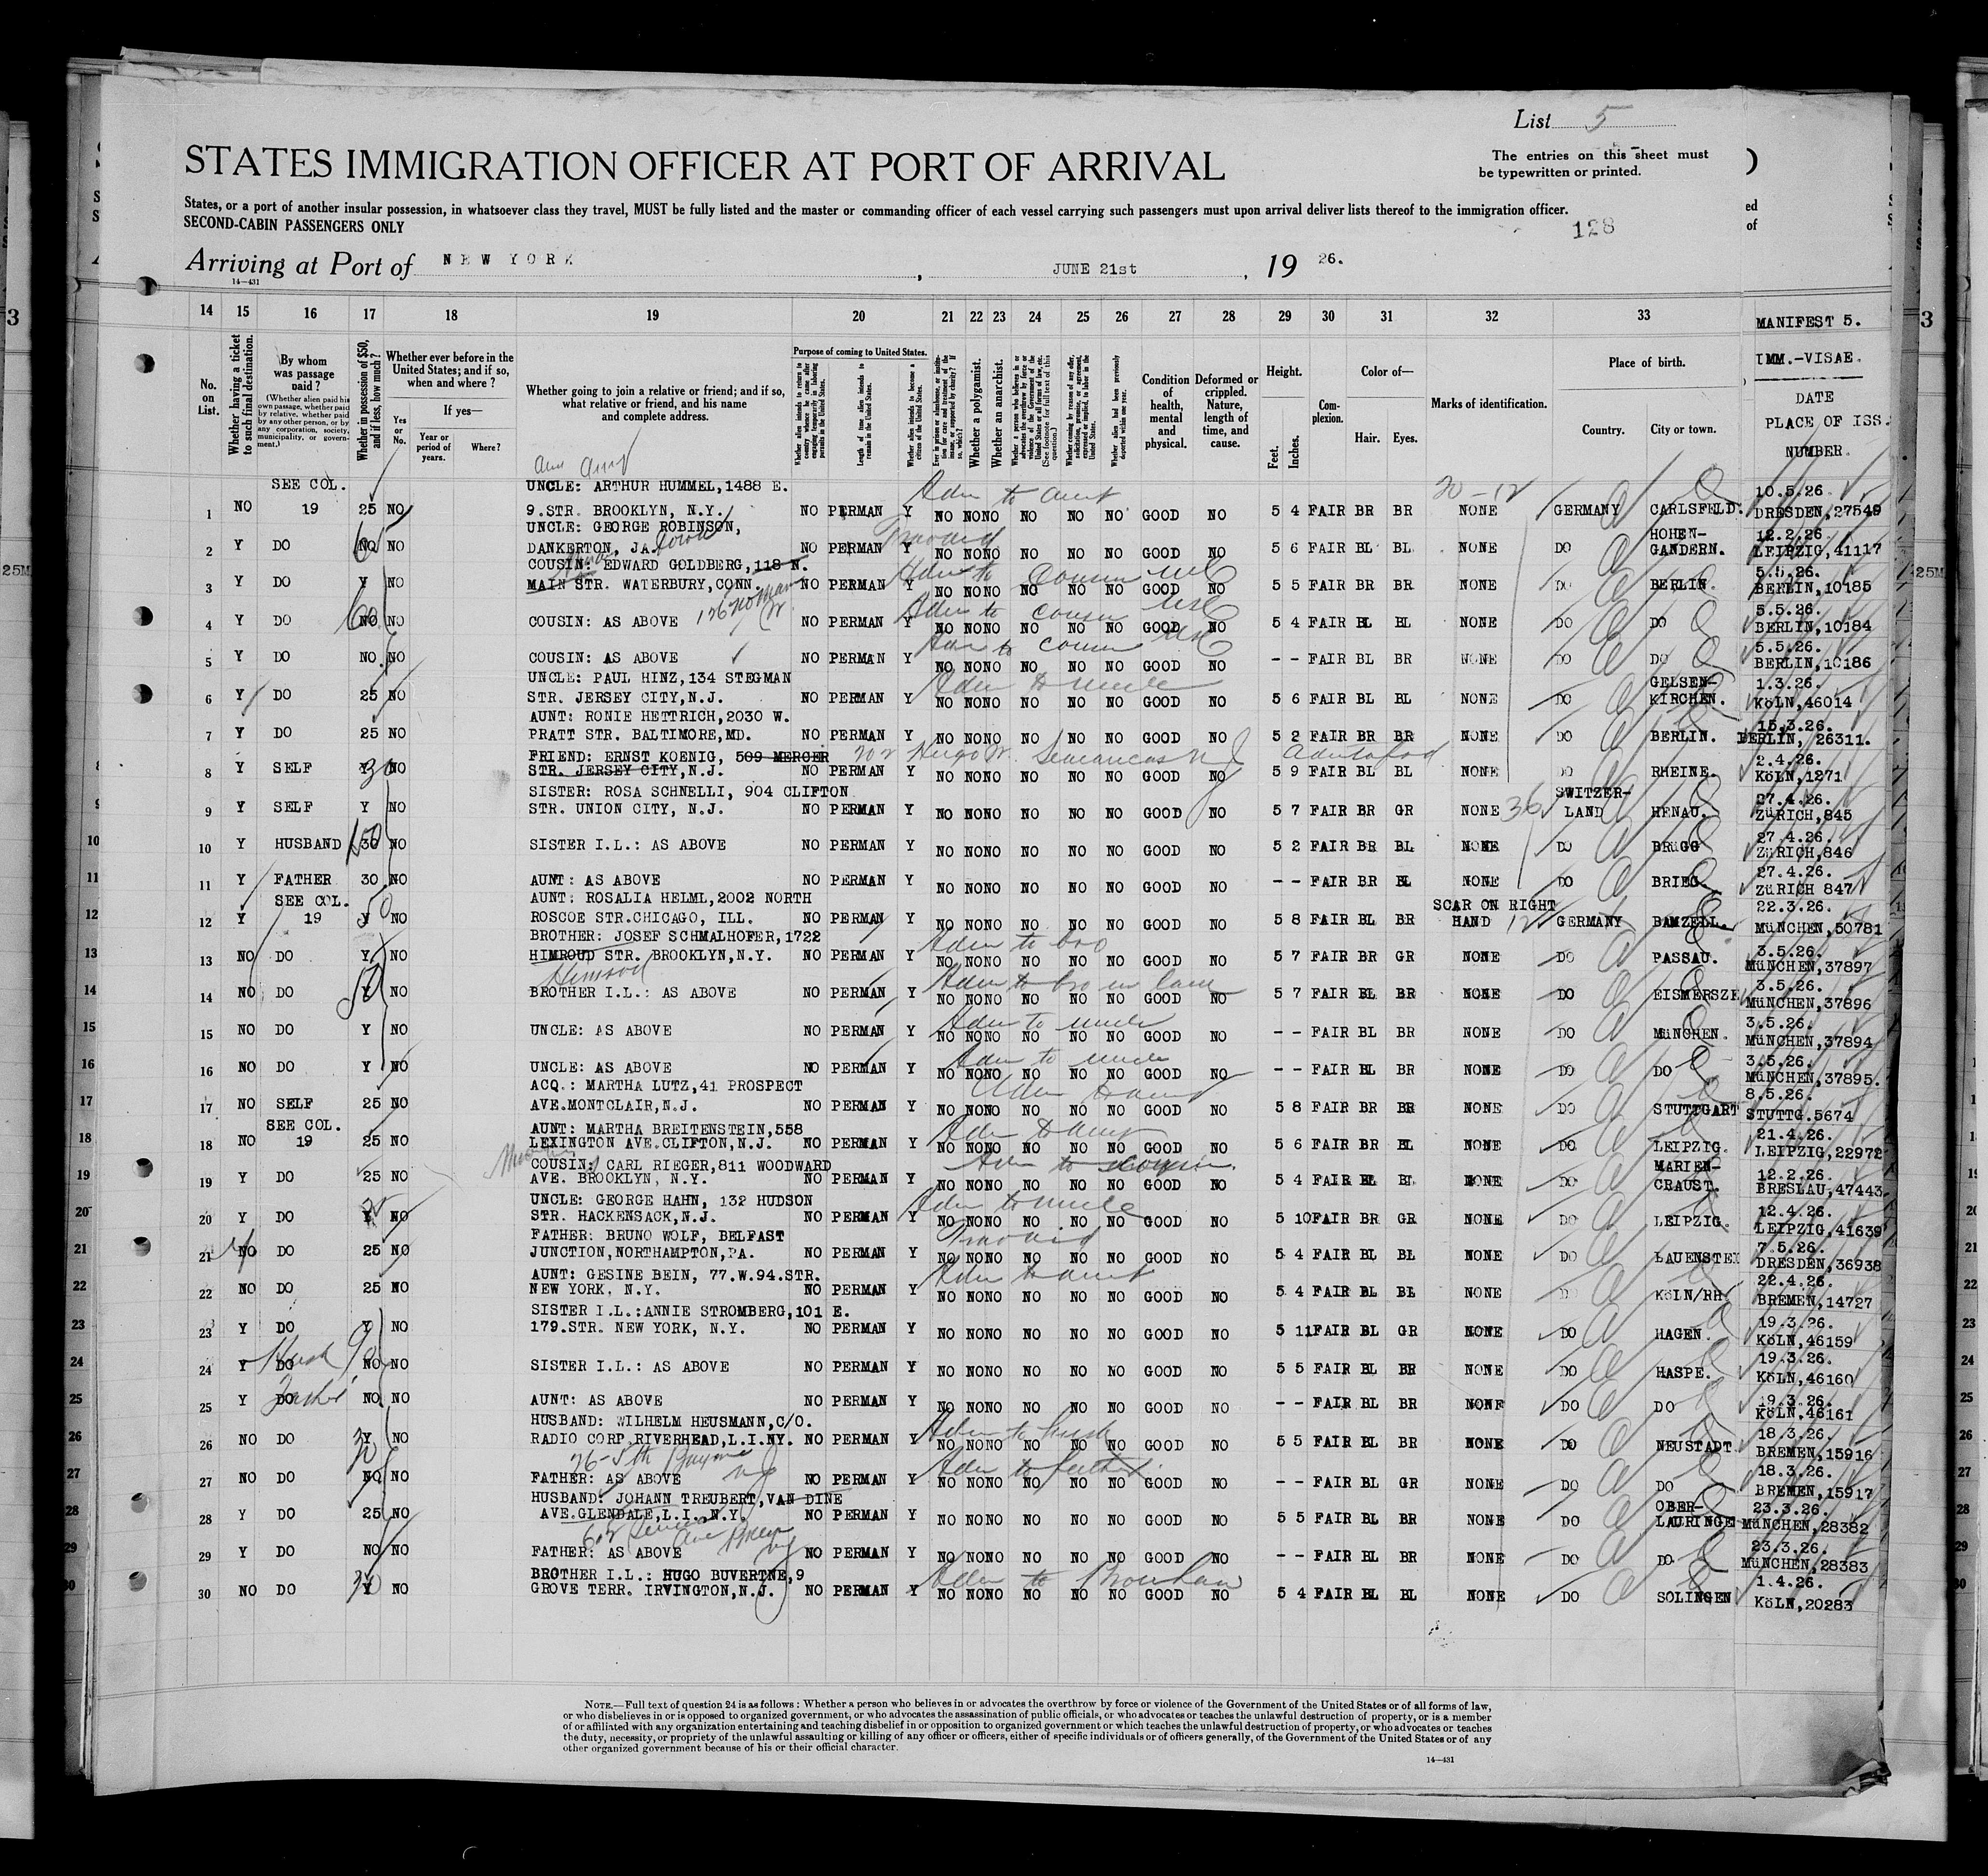 List 5
STATES IMMIGRATION OFFICER AT PORT OF ARRIVAL
The entries on this sheet must
be typewritten or printed.
States, or a port of another insular possession, in whatsoever class they travel, MUST be fully listed and the master or commanding officer of each vessel carrying such passengers must upon arrival deliver lists thereof to the immigration officer.
SECOND-CABIN PASSENGERS ONLY
128
Arriving at Port of NEW YORK, JUNE 21st, 19 26.
14—431
14 15 16 17 18 19 20 21 22 23 24 25 26 27 28 29 30 31 32 33
MANIFEST 5.
IMM.-VISAE.
DATE
PLACE OF ISS.
NUMBER.
No. on List.
Whether having a ticket to such final destination.
By whom was passage paid?
(Whether alien paid his own passage, whether paid by relative, whether paid by any other person, or by any corporation, society, municipality, or government.)
Whether in possession of $50, and if less, how much?
Whether ever before in the United States; and if so, when and where?
Yes or No.
If yes—
Year or period of years.
Where?
Whether going to join a relative or friend; and if so, what relative or friend, and his name and complete address.
Purpose of coming to United States.
Whether alien intends to return to country whence he came after engaging temporarily in laboring pursuits in the United States.
Length of time alien intends to remain in the United States.
Whether alien intends to become a citizen of the United States.
Ever in prison or almshouse, or institution for care and treatment of the insane, or supported by charity? If so, which?
Whether a polygamist.
Whether an anarchist.
Whether a person who believes in or advocates the overthrow by force or violence of the Government of the United States or all forms of law, etc. (See footnote for full text of this question.)
Whether coming by reason of any offer, solicitation, promise, or agreement, expressed or implied, to labor in the United States.
Whether alien had been previously deported within one year.
Condition of health, mental and physical.
Deformed or crippled. Nature, length of time, and cause.
Height.
Feet. Inches.
Complexion.
Color of—
Hair. Eyes.
Marks of identification.
Place of birth.
Country. City or town.
SEE COL. UNCLE: ARTHUR HUMMEL,1488 E. Adm to aunt 20-12 10.5.26.
1 NO 19 25 NO 9.STR. BROOKLYN, N.Y. NO PERMAN Y NO NO NO NO NO NO GOOD NO 5 4 FAIR BR BR NONE GERMANY CARLSFELD. DRESDEN,27549
UNCLE: GEORGE ROBINSON, HOHEN- 12.2.26.
2 Y DO NO NO DANKERTON, JA. Iowa NO PERMAN Y NO NO NO NO NO NO GOOD NO 5 6 FAIR BL BL NONE DO GANDERN. LEIPZIG,41117
COUSIN: EDWARD GOLDBERG,118 N. Adm to Cousin 5.5.26.
3 Y DO Y NO MAIN STR. WATERBURY,CONN. NO PERMAN Y NO NO NO NO NO NO GOOD NO 5 5 FAIR BR BR NONE DO BERLIN. BERLIN,10185
Adm to cousin 5.5.26.
4 Y DO NO NO COUSIN: AS ABOVE NO PERMAN Y NO NO NO NO NO NO GOOD NO 5 4 FAIR BL BL NONE DO DO BERLIN,10184
cousin 5.5.26.
5 Y DO NO. NO COUSIN: AS ABOVE NO PERMAN Y NO NO NO NO NO NO GOOD NO - - FAIR BL BR NONE DO DO BERLIN,10186
UNCLE: PAUL HINZ,134 STEGMAN Adm to uncle GELSEN- 1.3.26.
6 Y DO 25 NO STR. JERSEY CITY,N.J. NO PERMAN Y NO NO NO NO NO NO GOOD NO 5 6 FAIR BL BL NONE DO KIRCHEN. KöLN,46014
AUNT: RONIE HETTRICH,2030 W. 15.3.26.
7 Y DO 25 NO PRATT STR. BALTIMORE,MD. NO PERMAN Y NO NO NO NO NO NO GOOD NO 5 2 FAIR BR BR NONE DO BERLIN. BERLIN, 26311.
FRIEND: ERNST KOENIG, 509 MERCER 2.4.26.
8 Y SELF Y NO STR. JERSEY CITY,N.J. NO PERMAN Y NO NO NO NO NO NO GOOD NO 5 9 FAIR BL BL NONE DO RHEINE. KöLN,1271
SISTER: ROSA SCHNELLI, 904 CLIFTON SWITZER- 27.4.26.
9 Y SELF Y NO STR. UNION CITY, N.J. NO PERMAN Y NO NO NO NO NO NO GOOD NO 5 7 FAIR BR GR NONE 36 LAND HENAU. ZüRICH,845
27.4.26.
10 Y HUSBAND 30 NO SISTER I.L.: AS ABOVE NO PERMAN Y NO NO NO NO NO NO GOOD NO 5 2 FAIR BR BL NONE DO BRüGG ZüRICH,846
27.4.26.
11 Y FATHER 30 NO AUNT: AS ABOVE NO PERMAN Y NO NO NO NO NO NO GOOD NO - - FAIR BR BL NONE DO BRIEG. ZüRICH 847
SEE COL. AUNT: ROSALIA HELML,2002 NORTH SCAR ON RIGHT 22.3.26.
12 Y 19 Y NO ROSCOE STR.CHICAGO, ILL. NO PERMAN Y NO NO NO NO NO NO GOOD NO 5 8 FAIR BL BR HAND 12 GERMANY BAMZELL. MüNCHEN,50781
BROTHER: JOSEF SCHMALHOFER,1722 Adm to bro 3.5.26.
13 NO DO Y NO HIMROUD STR. BROOKLYN,N.Y. NO PERMAN Y NO NO NO NO NO NO GOOD NO 5 7 FAIR BR GR NONE DO PASSAU. MüNCHEN,37897
Himrod Adm to bro in law 3.5.26.
14 NO DO Y NO BROTHER I.L.: AS ABOVE NO PERMAN Y NO NO NO NO NO NO GOOD NO 5 7 FAIR BL BR NONE DO EISMERSZE MüNCHEN,37896
Adm to uncle 3.5.26.
15 NO DO Y NO UNCLE: AS ABOVE NO PERMAN Y NO NO NO NO NO NO GOOD NO - - FAIR BL BR NONE DO MüNCHEN. MüNCHEN,37894
Adm to uncle 3.5.26.
16 NO DO Y NO UNCLE: AS ABOVE NO PERMAN Y NO NO NO NO NO NO GOOD NO - - FAIR BL BR NONE DO DO MüNCHEN,37895.
ACQ.: MARTHA LUTZ,41 PROSPECT 8.5.26.
17 NO SELF 25 NO AVE.MONTCLAIR,N.J. NO PERMAN Y NO NO NO NO NO NO GOOD NO 5 8 FAIR BR BR NONE DO STUTTGART STUTTG.5674
SEE COL. AUNT: MARTHA BREITENSTEIN,558 Adm to aunt 21.4.26.
18 NO 19 25 NO LEXINGTON AVE.CLIFTON,N.J. NO PERMAN Y NO NO NO NO NO NO GOOD NO 5 6 FAIR BR BL NONE DO LEIPZIG. LEIPZIG,22972
COUSIN: CARL RIEGER,811 WOODWARD Adm to cousin MARIEN- 12.2.26.
19 Y DO 25 NO AVE. BROOKLYN, N.Y. NO PERMAN Y NO NO NO NO NO NO GOOD NO 5 4 FAIR BL BL NONE DO CRAUST. BRESLAU,47443
UNCLE: GEORGE HAHN, 132 HUDSON Adm to uncle 12.4.26.
20 Y DO Y NO STR. HACKENSACK,N.J. NO PERMAN Y NO NO NO NO NO NO GOOD NO 5 10 FAIR BR GR NONE DO LEIPZIG. LEIPZIG,41639
FATHER: BRUNO WOLF, BELFAST 7.5.26.
21 NO DO 25 NO JUNCTION,NORTHAMPTON,PA. NO PERMAN Y NO NO NO NO NO NO GOOD NO 5 4 FAIR BL BL NONE DO LAUENSTEI DRESDEN,36938
AUNT: GESINE BEIN, 77.W.94.STR. Adm to aunt 22.4.26.
22 NO DO 25 NO NEW YORK, N.Y. NO PERMAN Y NO NO NO NO NO NO GOOD NO 5 4 FAIR BL BL NONE DO KöLN/RH BREMEN,14727
SISTER I.L.:ANNIE STROMBERG,101 E. 19.3.26.
23 Y DO Y NO 179.STR. NEW YORK, N.Y. NO PERMAN Y NO NO NO NO NO NO GOOD NO 5 11 FAIR BL GR NONE DO HAGEN. KöLN,46159
19.3.26.
24 Y DO NO NO SISTER I.L.: AS ABOVE NO PERMAN Y NO NO NO NO NO NO GOOD NO 5 5 FAIR BL BR NONE DO HASPE. KöLN,46160
19.3.26.
25 Y DO NO NO AUNT: AS ABOVE NO PERMAN Y NO NO NO NO NO NO GOOD NO - - FAIR BL BR NONE DO DO KöLN,46161
HUSBAND: WILHELM HEUSMANN,C/O. Adm to husb 18.3.26.
26 NO DO Y NO RADIO CORP.RIVERHEAD,L.I.NY. NO PERMAN Y NO NO NO NO NO NO GOOD NO 5 5 FAIR BL BR NONE DO NEUSTADT BREMEN,15916
Adm to father 18.3.26.
27 NO DO NO NO FATHER: AS ABOVE NO PERMAN Y NO NO NO NO NO NO GOOD NO - - FAIR BL GR NONE DO DO BREMEN,15917
HUSBAND: JOHANN TREUBERT,VAN DINE OBER- 23.3.26.
28 Y DO 25 NO AVE.GLENDALE,L.I.,N.Y. NO PERMAN Y NO NO NO NO NO NO GOOD NO 5 5 FAIR BL BR NONE DO LAURINGE MüNCHEN,28382
23.3.26.
29 Y DO NO NO FATHER: AS ABOVE NO PERMAN Y NO NO NO NO NO NO GOOD NO - - FAIR BL BR NONE DO DO MüNCHEN,28383
BROTHER I.L.: HUGO BUVERTNE,9 1.4.26.
30 NO DO Y NO GROVE TERR. IRVINGTON,N.J. NO PERMAN Y NO NO NO NO NO NO GOOD NO 5 4 FAIR BL BL NONE DO SOLINGEN KöLN,20283
NOTE.—Full text of question 24 is as follows: Whether a person who believes in or advocates the overthrow by force or violence of the Government of the United States or of all forms of law,
or who disbelieves in or is opposed to organized government, or who advocates the assassination of public officials, or who advocates or teaches the unlawful destruction of property, or is a member
of or affiliated with any organization entertaining and teaching disbelief in or opposition to organized government or which teaches the unlawful destruction of property, or who advocates or teaches
the duty, necessity, or propriety of the unlawful assaulting or killing of any officer or officers, either of specific individuals or of officers generally, of the Government of the United States or of any
other organized government because of his or their official character.
14—431